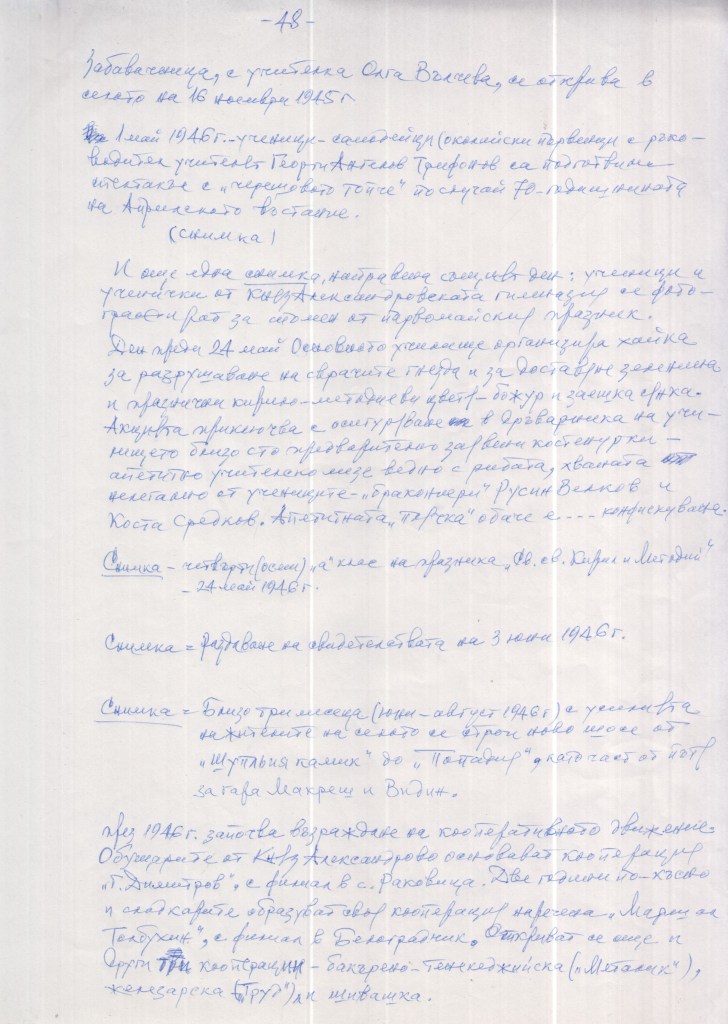 -48-
Забавачница, с учителка Олга Вълчева, се открива в
селото на 16 ноември 1945 г
1 май 1946 г. - ученици-самодейци (околийски първенци с ръко-
водител учителят Георги Ангелов Трифонов са подготвили
спектакъл с "черешовото топче" по случай 70-годишнината
на Априлското въстание.
(снимка)
И още една снимка, направена същият ден: ученици и
ученички от КнязАлександровската гимназия се фото-
графират за спомен от първомайския празник.
Ден преди 24 май Основното училище организира хайка
за разрушаване на сврачите гнезда и за доставяне зеленина
и празнични кирило-методиеви цветя - божур и заешка сянка.
Акцията приключва с осигуряване в дърварника на учи-
лището близо сто предварително заявени костенурки -
апетитно учителско мезе ведно с рибата, хваната
нелегално от учениците-"бракониери" Русин Велков и
Коста Средков. Апетитната "пърчка" обаче е .... конфискувана.
Снимка - четвърти (осми) "а" клас на празника "Св. св. Кирил и Методий"
- 24 май 1946 г.
Снимка = Раздаване на свидетелствата на 3 юни 1946 г.
Снимка = Близо три месеца (юни - август 1946 г) с усилията
на жителите на селото се строи ново шосе от
"Шуплья камик" до "Попадия", като част от пътя
за гара Макреш и Видин.
През 1946 г. започва възраждане на кооперативното движение.
Обущарите от КнязАлександрово основават кооперация
"Г. Димитров", с филиал в с. Раковица. Две години по-късно
и сладкарите образуват своя кооперация наречена "Маршал
Толбухин", с филиал в Белоградчик. Откриват се още и
други три кооперации - бакърено-тенекеджийска ("Металик"),
железарска ("Труд") и шивашка.